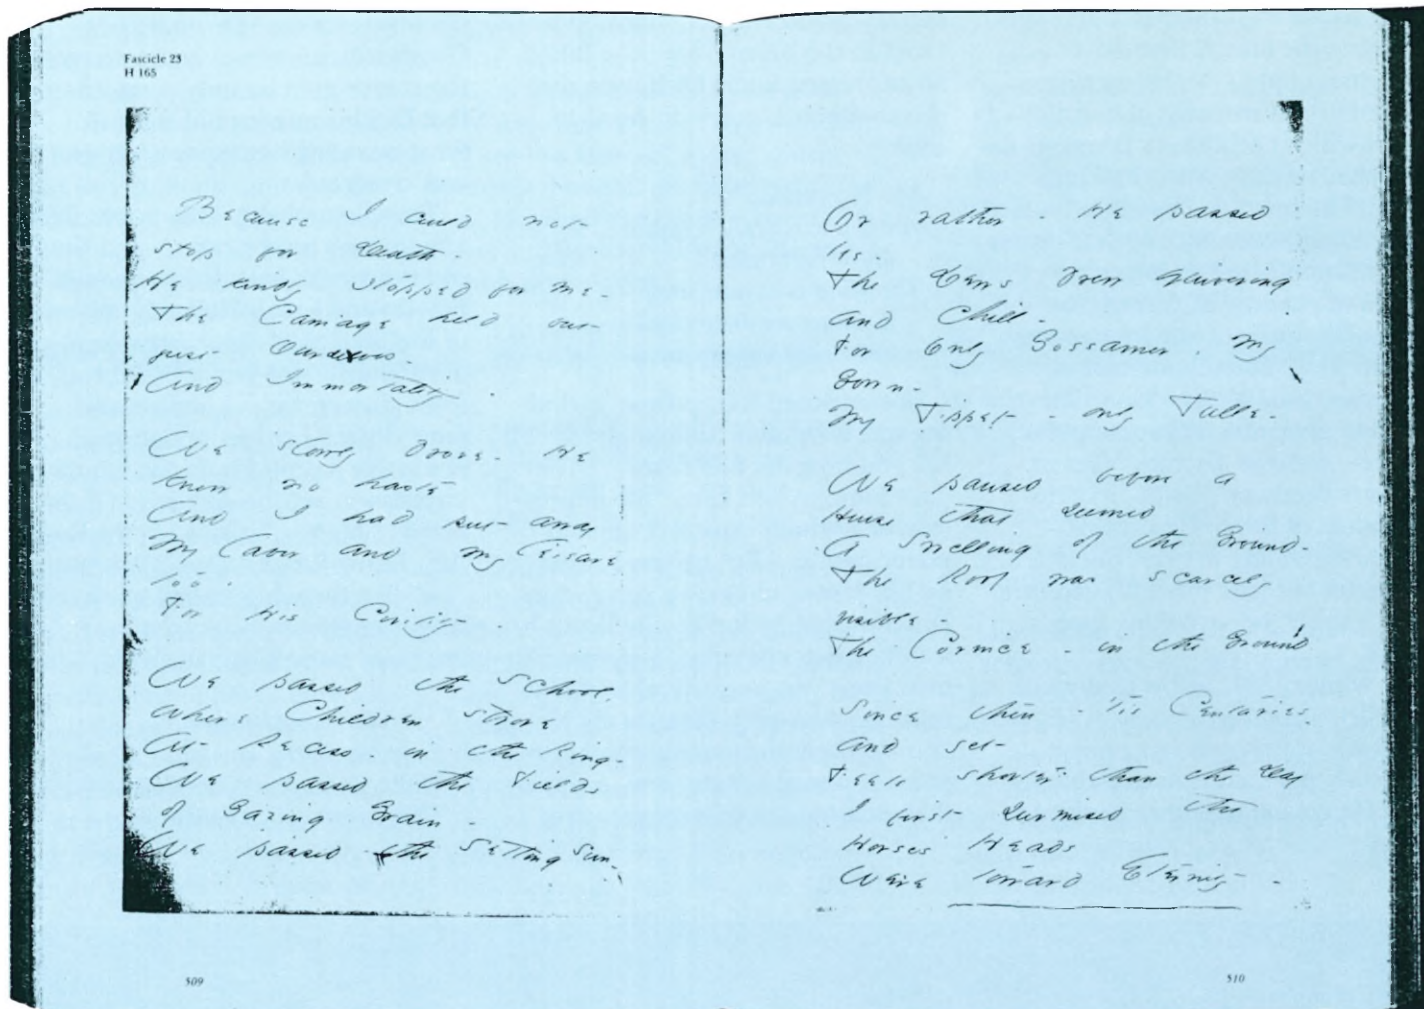 Fascicle 23
H 165
Because I could not
stop for Death -
He kindly stopped for me -
The Carriage held but
just Ourselves -
And Immortality.
We slowly drove - He
knew no haste
And I had put away
My labor and my leisure
too,
For His Civility -
We passed the School,
where Children strove
At Recess - in the Ring -
We passed the Fields
of Gazing Grain -
We passed the Setting Sun -
Or rather - He passed
Us -
The Dews drew quivering
and Chill -
For only Gossamer, my
Gown -
My Tippet - only Tulle -
We paused before a
House that seemed
A Swelling of the Ground -
The Roof was scarcely
visible -
The Cornice - in the Ground -
Since then - 'tis Centuries -
and yet
Feels shorter than the Day
I first surmised the
Horses Heads
Were toward Eternity -
509
510